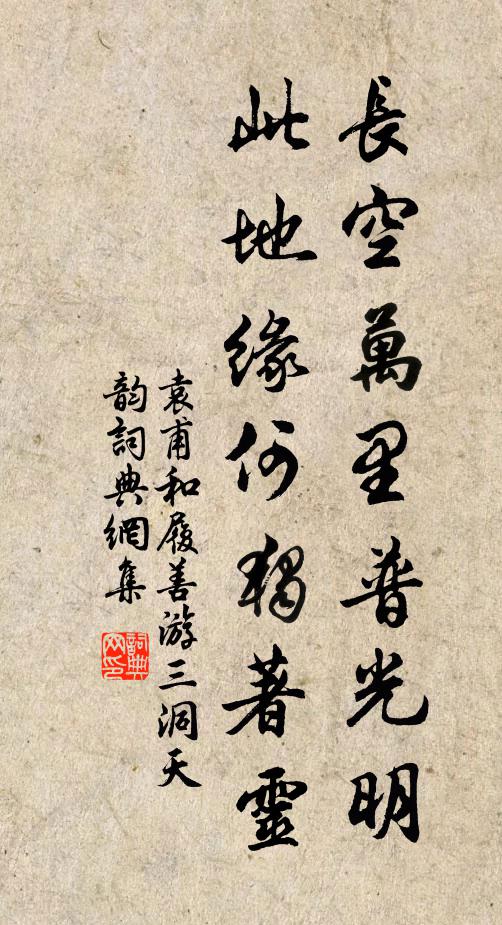 長空萬里普光明
此地緣何獨著靈
袁甫和履善游三洞天
韵詞典網集
詞典
网印